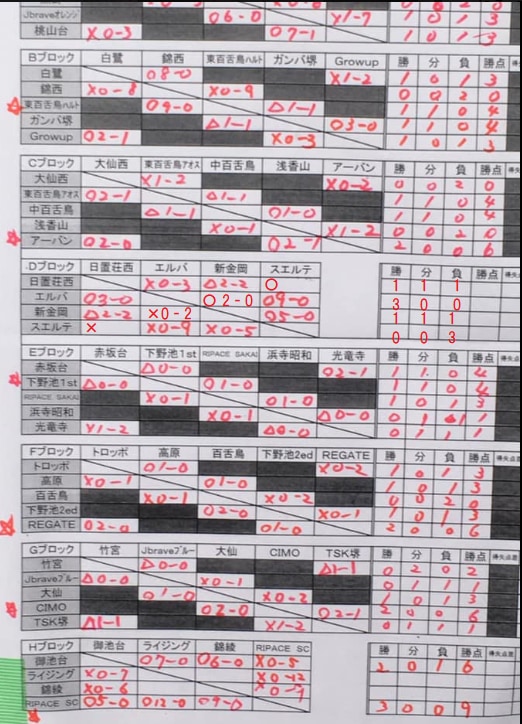 Jbraveオレンジ 06-0 X1-7 1 0 1 3
桃山台 X0-3 07-1 1 0 1 3
Bブロック 白鷺 錦西 東百舌鳥ハルト ガンバ堺 Growup 勝 分 負 勝点 得失
白鷺 08-0 X1-2 1 0 1 3
錦西 X0-8 X0-9 0 0 2 0
東百舌鳥ハルト 09-0 △1-1 1 1 0 4
ガンバ堺 △1-1 03-0 1 1 0 4
Growup 02-1 X0-3 1 0 1 3
Cブロック 大仙西 東百舌鳥アオス 中百舌鳥 浅香山 アーバン 勝 分 負 勝点 得失
大仙西 X1-2 X0-2 0 0 2 0
東百舌鳥アオス 02-1 △1-1 1 1 0 4
中百舌鳥 △1-1 01-0 1 1 0 4
浅香山 X0-1 X1-2 0 0 2 0
アーバン 02-0 02-1 2 0 0 6
Dブロック 日置荘西 エルバ 新金岡 スエルテ 勝 分 負 勝点 得失点
日置荘西 X0-3 △2-2 ○ 1 1 1
エルバ 03-0 ○2-0 09-0 3 0 0
新金岡 △2-2 ×0-2 05-0 1 1 1
スエルテ × X0-9 X0-5 0 0 3
Eブロック 赤坂台 下野池1st RIPACE SAKAI 浜寺昭和 光竜寺 勝 分 負 勝点 得失
赤坂台 △0-0 02-1 1 1 0 4
下野池1st △0-0 01-0 1 1 0 4
RIPACE SAKAI X0-1 01-0 1 0 1 3
浜寺昭和 X0-1 △0-0 0 1 1 1
光竜寺 X1-2 △0-0 0 1 1 1
Fブロック トロッポ 高原 百舌鳥 下野池2ed REGATE 勝 分 負 勝点 得失
トロッポ 01-0 X0-2 1 0 1 3
高原 X0-1 01-0 1 0 1 3
百舌鳥 X0-1 X0-2 0 0 2 0
下野池2ed 02-0 X0-1 1 0 1 3
REGATE 02-0 01-0 2 0 0 6
Gブロック 竹宮 Jbraveブルー 大仙 CIMO TSK堺 勝 分 負 勝点 得失点
竹宮 △0-0 △1-1 0 2 0 2
Jbraveブルー △0-0 X0-1 0 1 1 1
大仙 01-0 X0-2 1 0 1 3
CIMO 02-0 02-1 2 0 0 6
TSK堺 △1-1 X1-2 0 1 1 1
Hブロック 御池台 ライジング 錦綾 RIPACE SC 勝 分 負 勝点 得失点差
御池台 07-0 06-0 X0-5 2 0 1 6
ライジング X0-7 X0-12
錦綾 X0-6
RIPACE SC 05-0 012-0 09-0 3 0 0 9